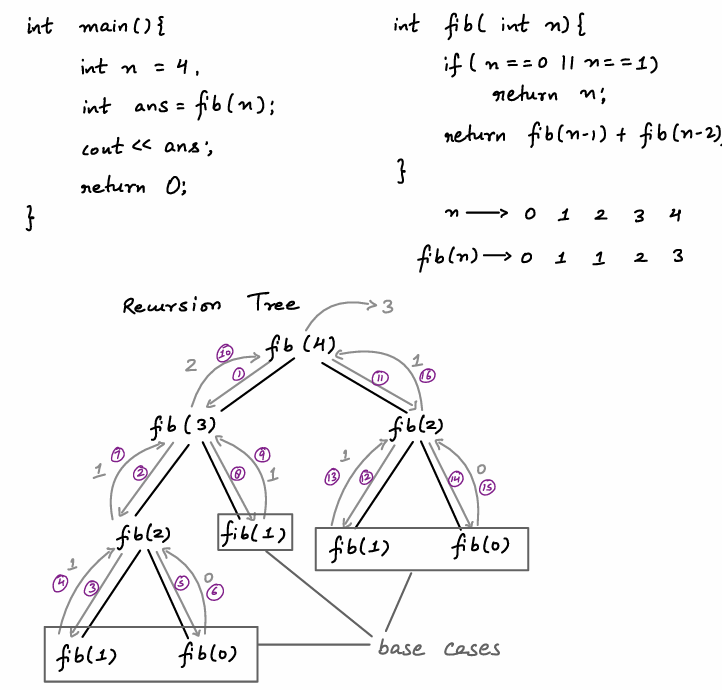 int main(){
int n = 4,
int ans = fib(n);
cout << ans;
return 0;
}
int fib( int n){
if( n==0 || n==1)
return n;
return fib(n-1) + fib(n-2);
}
n → 0 1 2 3 4
fib(n) → 0 1 1 2 3
Recursion Tree
3
fib (4)
2 10 1 11 1 16
fib (3) fib(2)
7 1 2 8 9 1 13 1 12 14 0 15
fib(2) fib(1) fib(1) fib(0)
4 1 3 5 0 6
fib(1) fib(0)
base cases